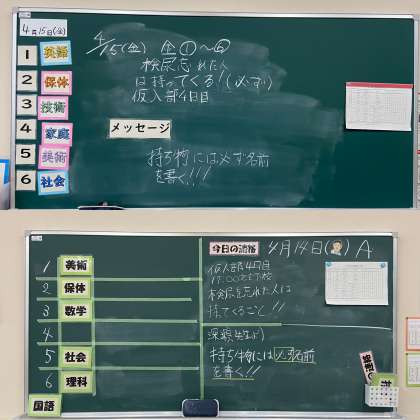 4月15日(金)
1 英語
2 保体
3 技術
4 家庭
5 美術
6 社会
4/15(金) 金①〜⑥
検尿忘れた人
は持ってくる!(必ず)
仮入部4日目
メッセージ
持ち物には必ず名前
を書く!!!
1 美術
2 保体
3 数学
4
5 社会
6 理科
国語
今日の連絡 4月14日( ) A
仮入部4日目
17:00完全下校
検尿を忘れた人は
持てくるごと!!
持ち物には必ず名前
を書く!!